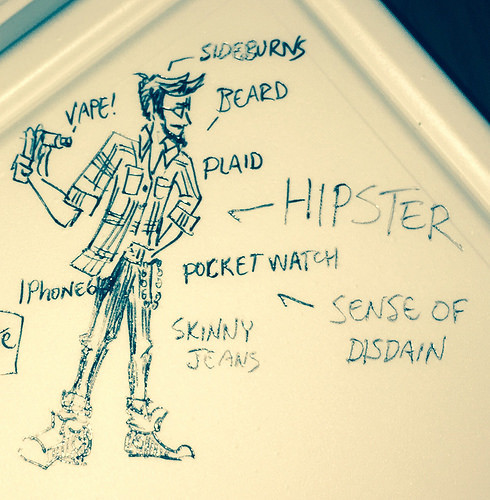 SIDEBURNS
VAPE!
BEARD
PLAID
HIPSTER
POCKET WATCH
IPHONE6
SENSE OF
DISDAIN
SKINNY
JEANS